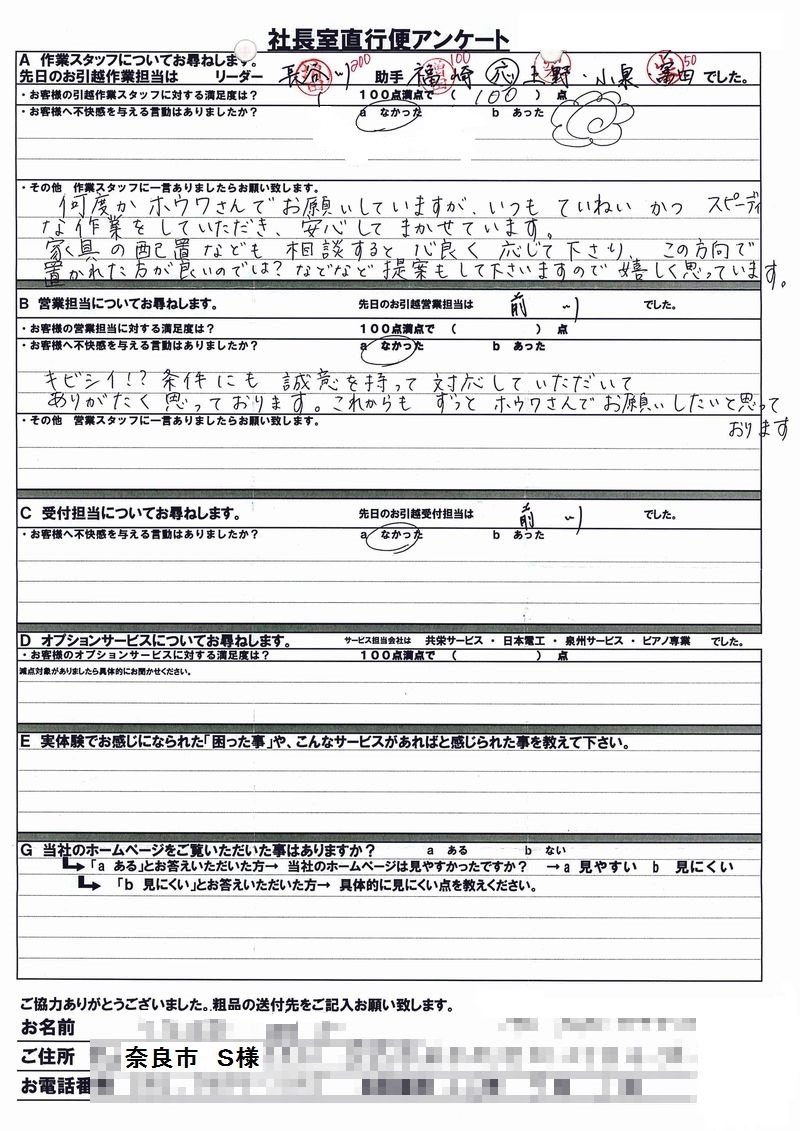 社長室直行便アンケート
A 作業スタッフについてお尋ねします。
先日のお引越作業担当は リーダー 長谷川 200 助手 福崎 100 応 上野・小泉 澤田 50 でした。
・お客様の引越作業スタッフに対する満足度は? 100点満点で ( 100 ) 点
・お客様へ不快感を与える言動はありましたか? a なかった b あった
・その他 作業スタッフに一言ありましたらお願い致します。
何度か ホウワさんで お願いしていますが、いつも ていねい かつ スピーディ
な 作業をしていただき、安心して まかせています。
家具の配置なども 相談すると 心良く 応じて下さり、この方向で
置かれた方が良いのでは? などなど 提案もして下さいますので 嬉しく思っています。
B 営業担当についてお尋ねします。 先日のお引越営業担当は 前川 でした。
・お客様の営業担当に対する満足度は? 100点満点で ( ) 点
・お客様へ不快感を与える言動はありましたか? a なかった b あった
キビシイ!? 条件にも 誠意を持って 対応していただいて
ありがたく 思っております。これからも ずっと ホウワさんでお願いしたいと思って
おります
・その他 営業スタッフに一言ありましたらお願い致します。
C 受付担当についてお尋ねします。 先日のお引越受付担当は 前川 でした。
・お客様へ不快感を与える言動はありましたか? a なかった b あった
D オプションサービスについてお尋ねします。 サービス担当会社は 共栄サービス ・ 日本電工 ・ 泉州サービス ・ ピアノ専業 でした。
・お客様のオプションサービスに対する満足度は? 100点満点で ( ) 点
減点対象がありましたら具体的にお聞かせください。
E 実体験でお感じになられた「困った事」や、こんなサービスがあればと感じられた事を教えて下さい。
G 当社のホームページをご覧いただいた事はありますか? a ある b ない
「a ある」とお答えいただいた方→ 当社のホームページは見やすかったですか? →a 見やすい b 見にくい
「b 見にくい」とお答えいただいた方→ 具体的に見にくい点を教えください。
ご協力ありがとうございました。粗品の送付先をご記入お願い致します。
お名前
ご住所 奈良市 S様
お電話番